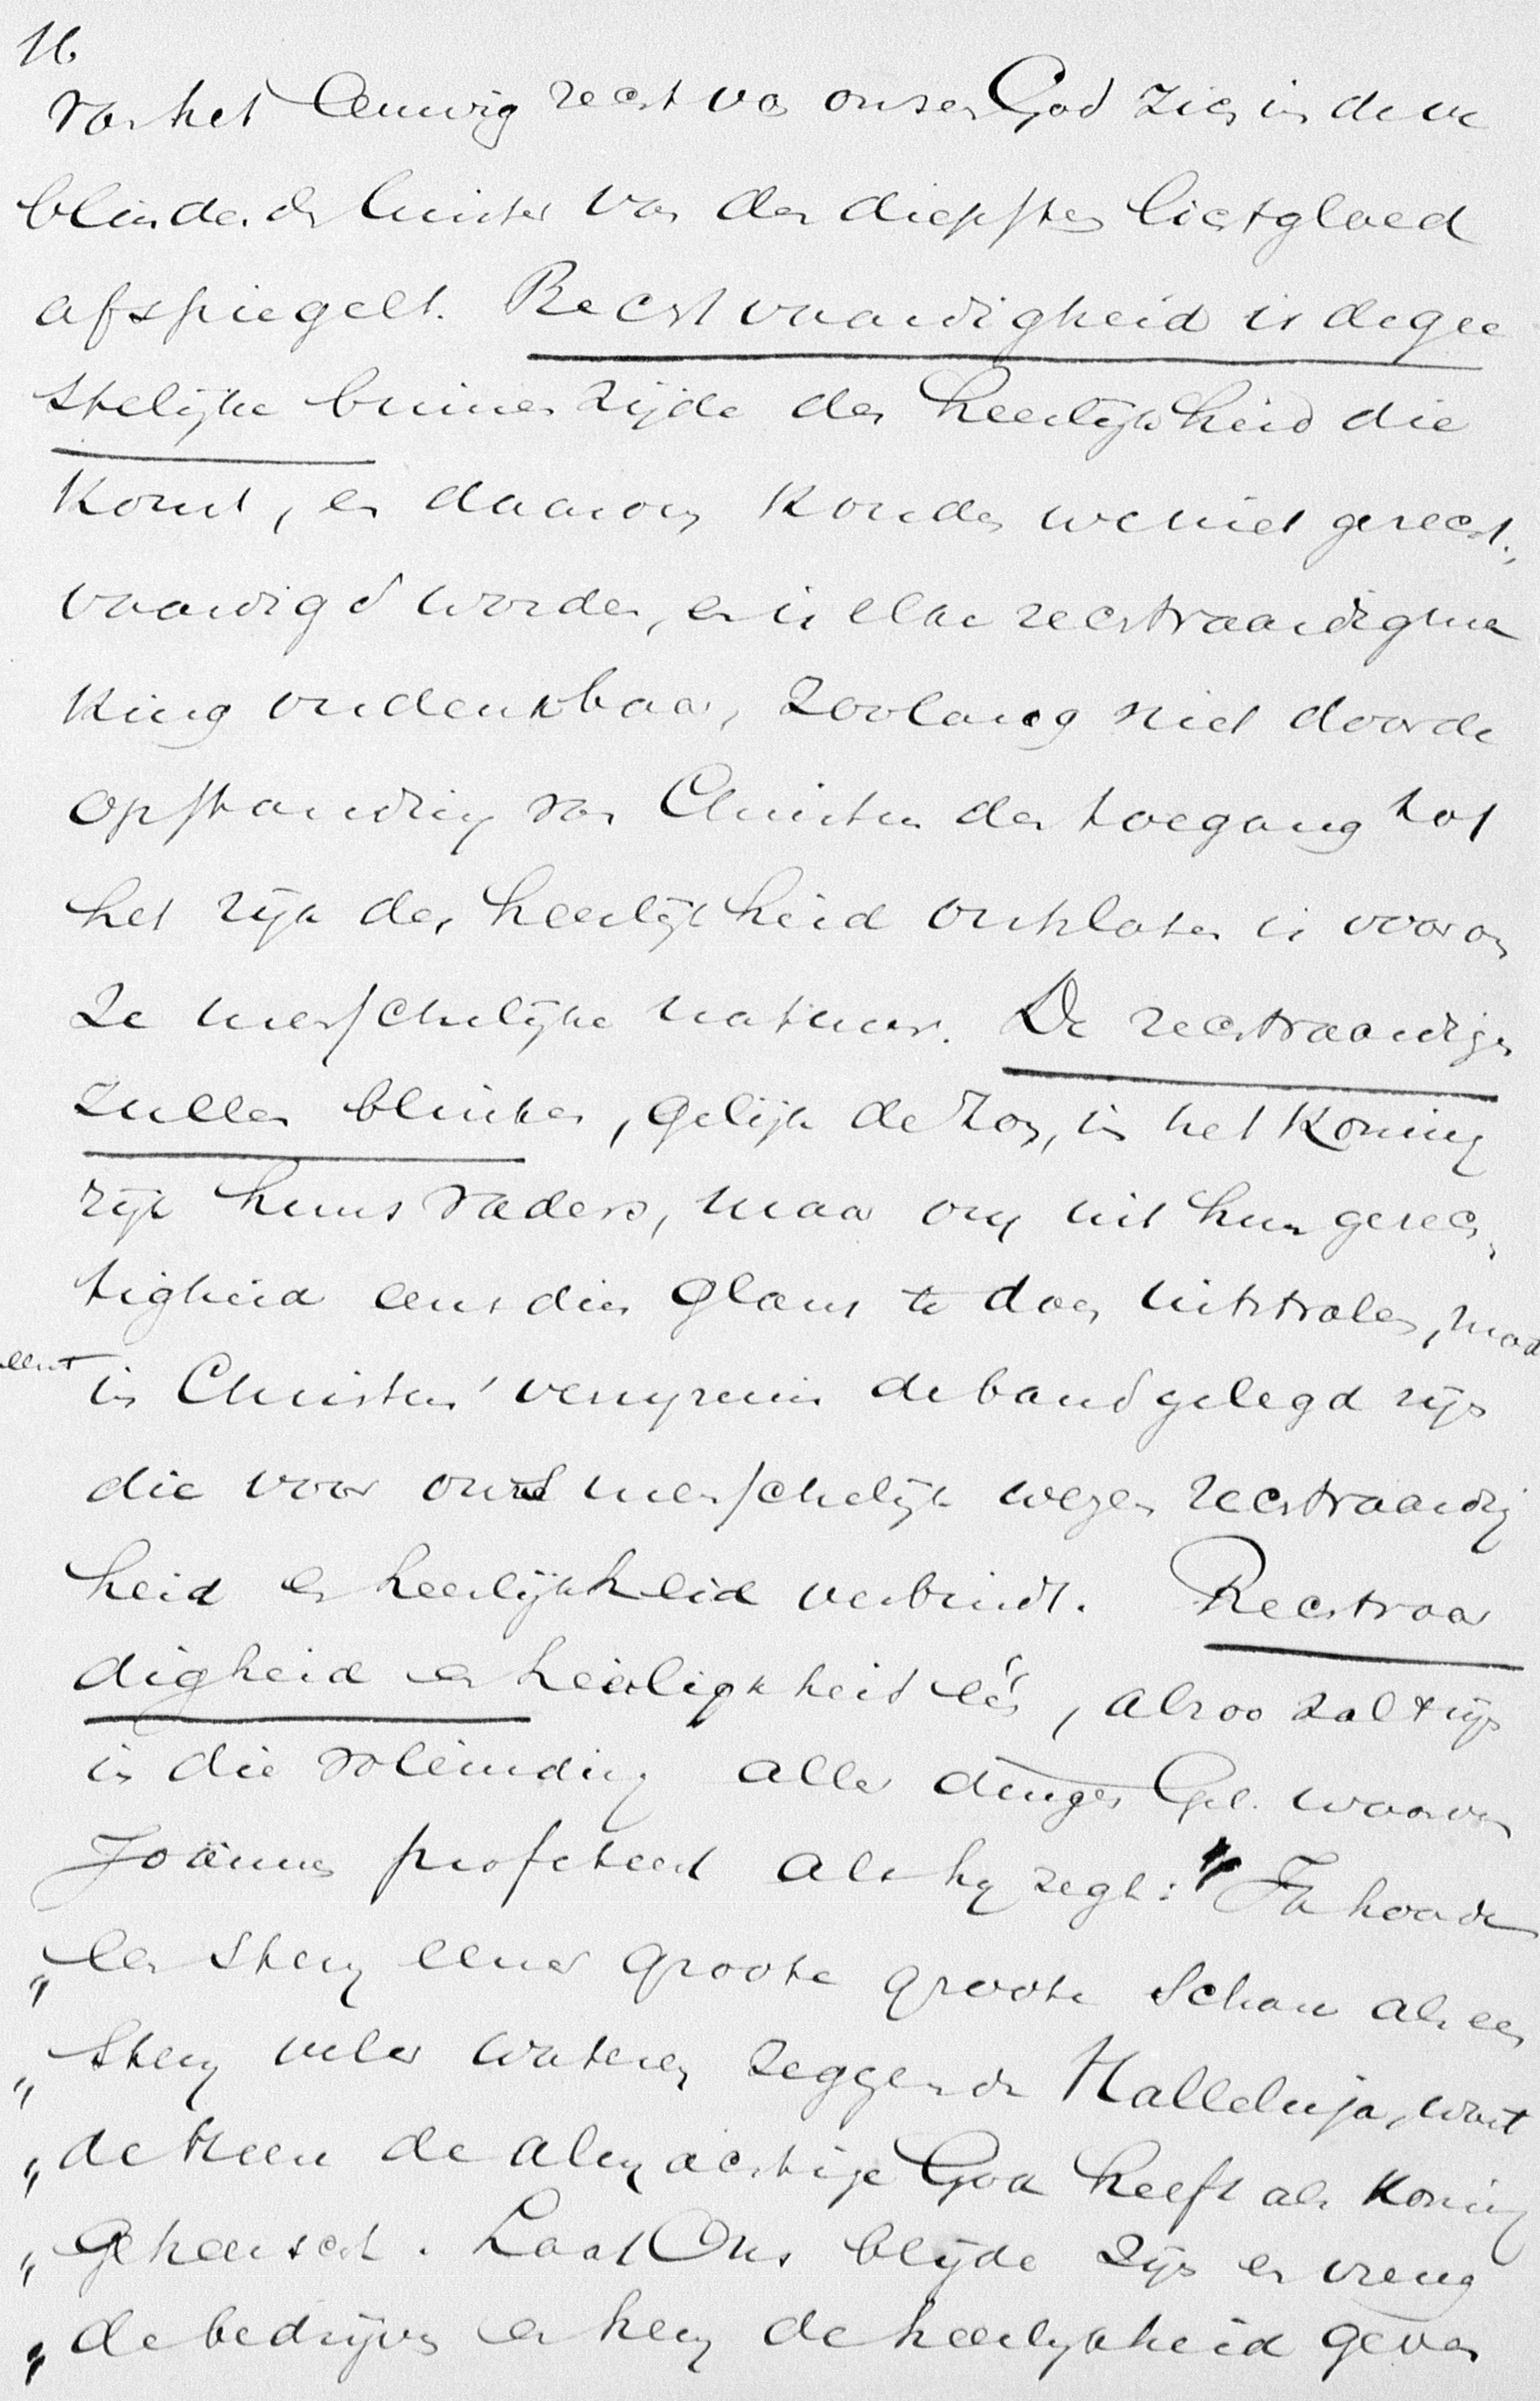 16.
van het Eeuwig recht van onzen God zich in den ver
blindenden luister van den diepsten lichtgloed
afspiegelt. Rechtvaardigheid is de gee
stelijke binnenzijde der heerlijkheid die
komt, en daarom konden we niet gerecht,
vaardigd worden, en is elke rechtvaardigma
king ondenkbaar, zoolang niet door de
opstanding van Christus de toegang tot
het rijk der heerlijkheid ontsloten is voor on
ze menschelijke natuur. De rechtvaardigen
zullen blinken, gelijk de zon, in het koning
rijk huns Vaders, maar om uit hun gerech,
tigheid eens dien glans te doen uitstralen, moet
eerst in Christus' verrijzenis de band gelegd zijn
die voor ons menschelijk wezen rechtvaardig
heid en heerlijkheid verbindt. Rechtvaar
digheid en heerlijkheid één, alzoo zal 't zijn
in die voleinding aller dingen Gel. waarvan
Joännes profeteert als hij zegt: "Ik hoorde
„een stem eener groote groote schare als een
„stem veler wateren zeggende Halleluja, want
„de Heere de almachtige God heeft als koning
„geheerscht. Laat Ons blijde zijn en vreug
„de bedrijven en hem de heerlijkheid geven